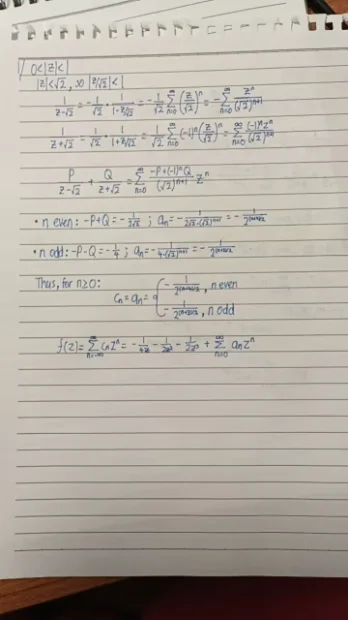 0<|z|<|
|z|<√2, so |z/√2|<|
1/(z-√2) = -1/√2 · 1/(1-z/√2) = -1/√2 ∑_{n=0}^{∞} (z/√2)^n = -∑_{n=0}^{∞} z^n/(√2)^{n+1}
1/(z+√2) = 1/√2 · 1/(1+z/√2) = 1/√2 ∑_{n=0}^{∞} (-1)^n (z/√2)^n = ∑_{n=0}^{∞} (-1)^n z^n/(√2)^{n+1}
P/(z-√2) + Q/(z+√2) = ∑_{n=0}^{∞} (-P+(-1)^n Q)/(√2)^{n+1} · z^n
• n even: -P+Q = -1/(2√2) ; a_n = -1/(2√2·(√2)^{n+1}) = -1/
• n odd: -P-Q = -1/4 ; a_n = -1/(4·(√2)^{n+1}) = -1/
Thus, for n≥0:
c_n = a_n = { -1/ , n even
-1/ , n odd
f(z) = ∑_{n=-∞}^{∞} c_n z^n = -1/ -1/ -1/ + ∑_{n=0}^{∞} a_n z^n